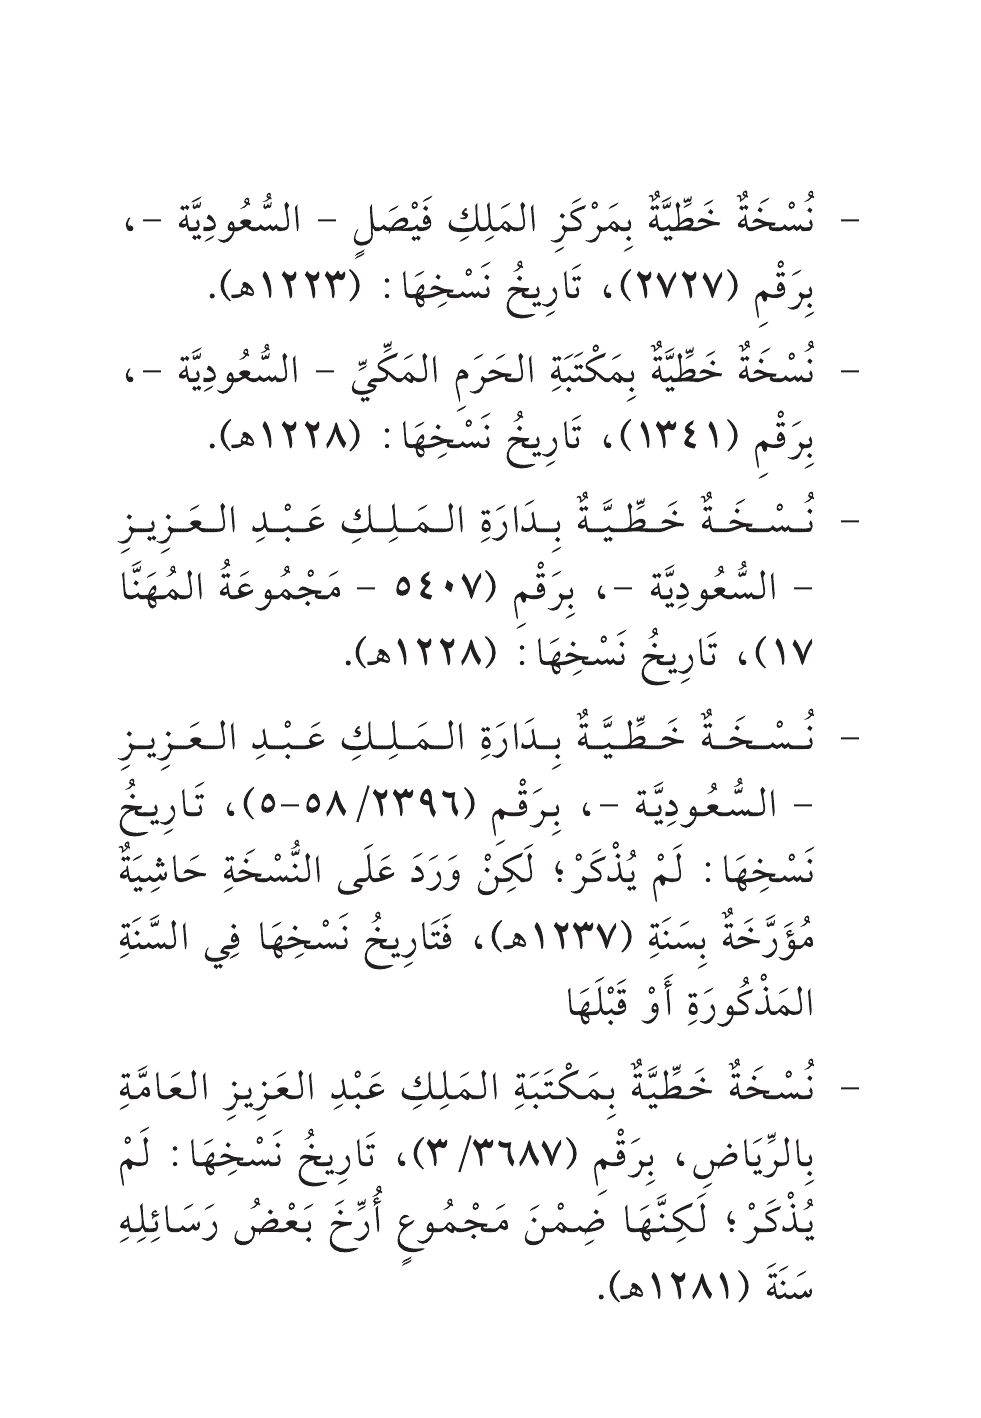 - نُسْخَةٌ خَطِّيَّةٌ بِمَرْكَزِ المَلِكِ فَيْصَلٍ - السُّعُودِيَّة -،
بِرَقْمِ (٢٧٢٧)، تَارِيخُ نَسْخِهَا: (١٢٢٣هـ).
- نُسْخَةٌ خَطِّيَّةٌ بِمَكْتَبَةِ الحَرَمِ المَكِّيِّ - السُّعُودِيَّة -،
بِرَقْمِ (١٣٤١)، تَارِيخُ نَسْخِهَا: (١٢٢٨هـ).
- نُسْخَةٌ خَطِّيَّةٌ بِدَارَةِ المَلِكِ عَبْدِ العَزِيزِ
- السُّعُودِيَّة -، بِرَقْمِ (٥٤٠٧ - مَجْمُوعَةُ المُهَنَّا
١٧)، تَارِيخُ نَسْخِهَا: (١٢٢٨هـ).
- نُسْخَةٌ خَطِّيَّةٌ بِدَارَةِ المَلِكِ عَبْدِ العَزِيزِ
- السُّعُودِيَّة -، بِرَقْمِ (٢٣٩٦/ ٥٨-٥)، تَارِيخُ
نَسْخِهَا: لَمْ يُذْكَرْ؛ لَكِنْ وَرَدَ عَلَى النُّسْخَةِ حَاشِيَةٌ
مُؤَرَّخَةٌ بِسَنَةِ (١٢٣٧هـ)، فَتَارِيخُ نَسْخِهَا فِي السَّنَةِ
المَذْكُورَةِ أَوْ قَبْلَهَا
- نُسْخَةٌ خَطِّيَّةٌ بِمَكْتَبَةِ المَلِكِ عَبْدِ العَزِيزِ العَامَّةِ
بِالرِّيَاضِ، بِرَقْمِ (٣٦٨٧/ ٣)، تَارِيخُ نَسْخِهَا: لَمْ
يُذْكَرْ؛ لَكِنَّهَا ضِمْنَ مَجْمُوعٍ أُرِّخَ بَعْضُ رَسَائِلِهِ
سَنَةَ (١٢٨١هـ).